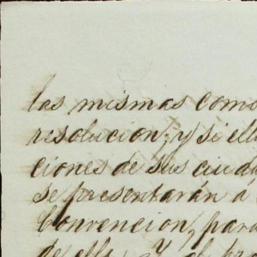 las mismas como
resolucion; y si ella
ciones de sus ciuda
se presentarán á
Convencion, para
de ella. Y al pro